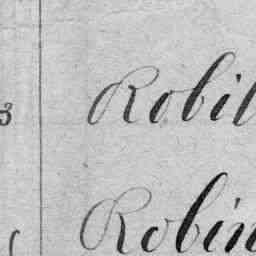 3 Robil
Robin